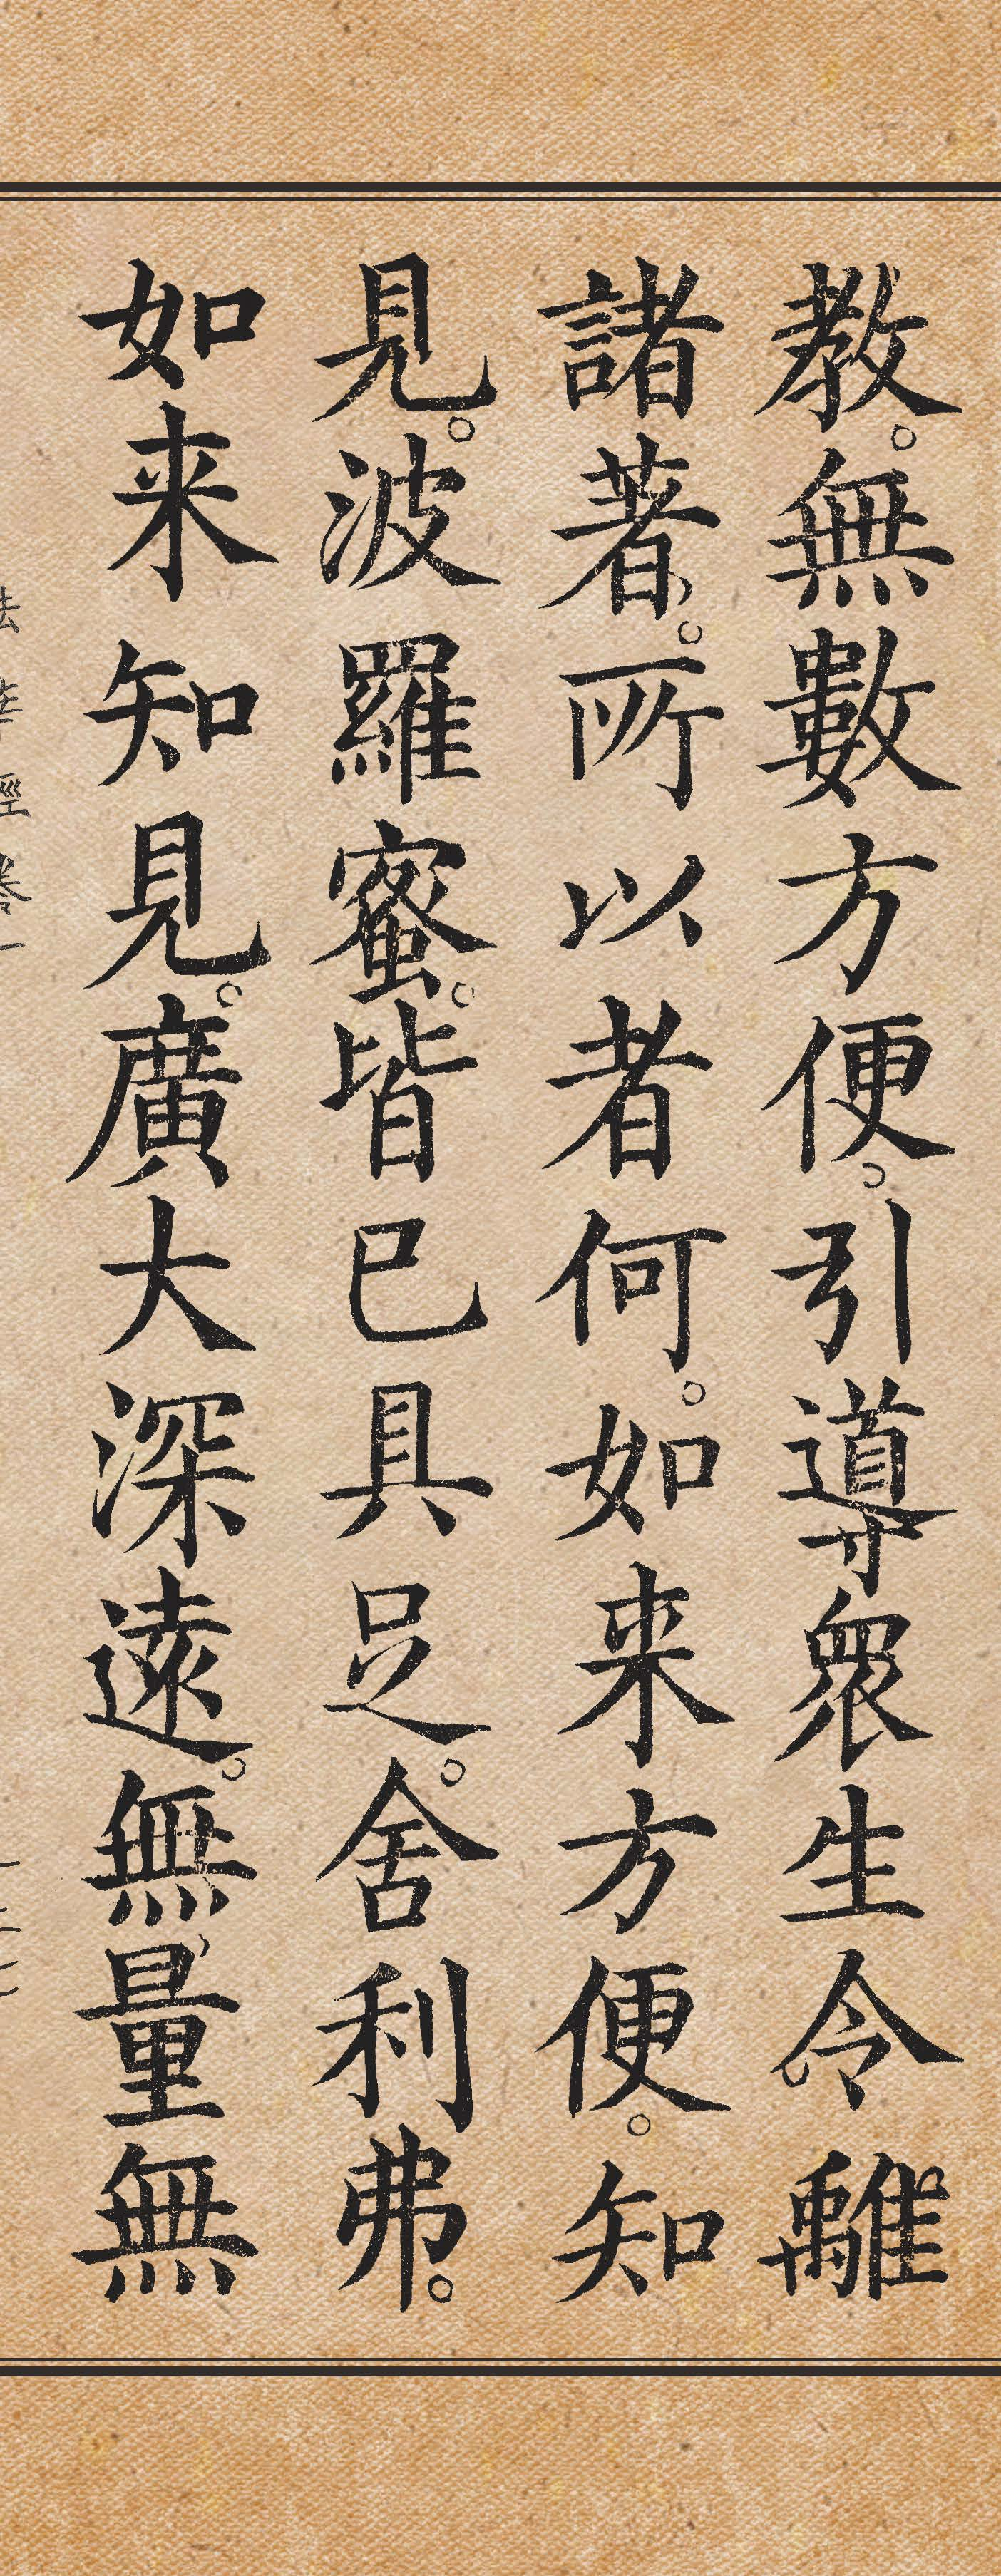 教。無數方便。引導衆生令離
諸著。所以者何。如来方便。知
見。波羅蜜。皆已具足。舍利弗。
如来知見。廣大深遠。無量無